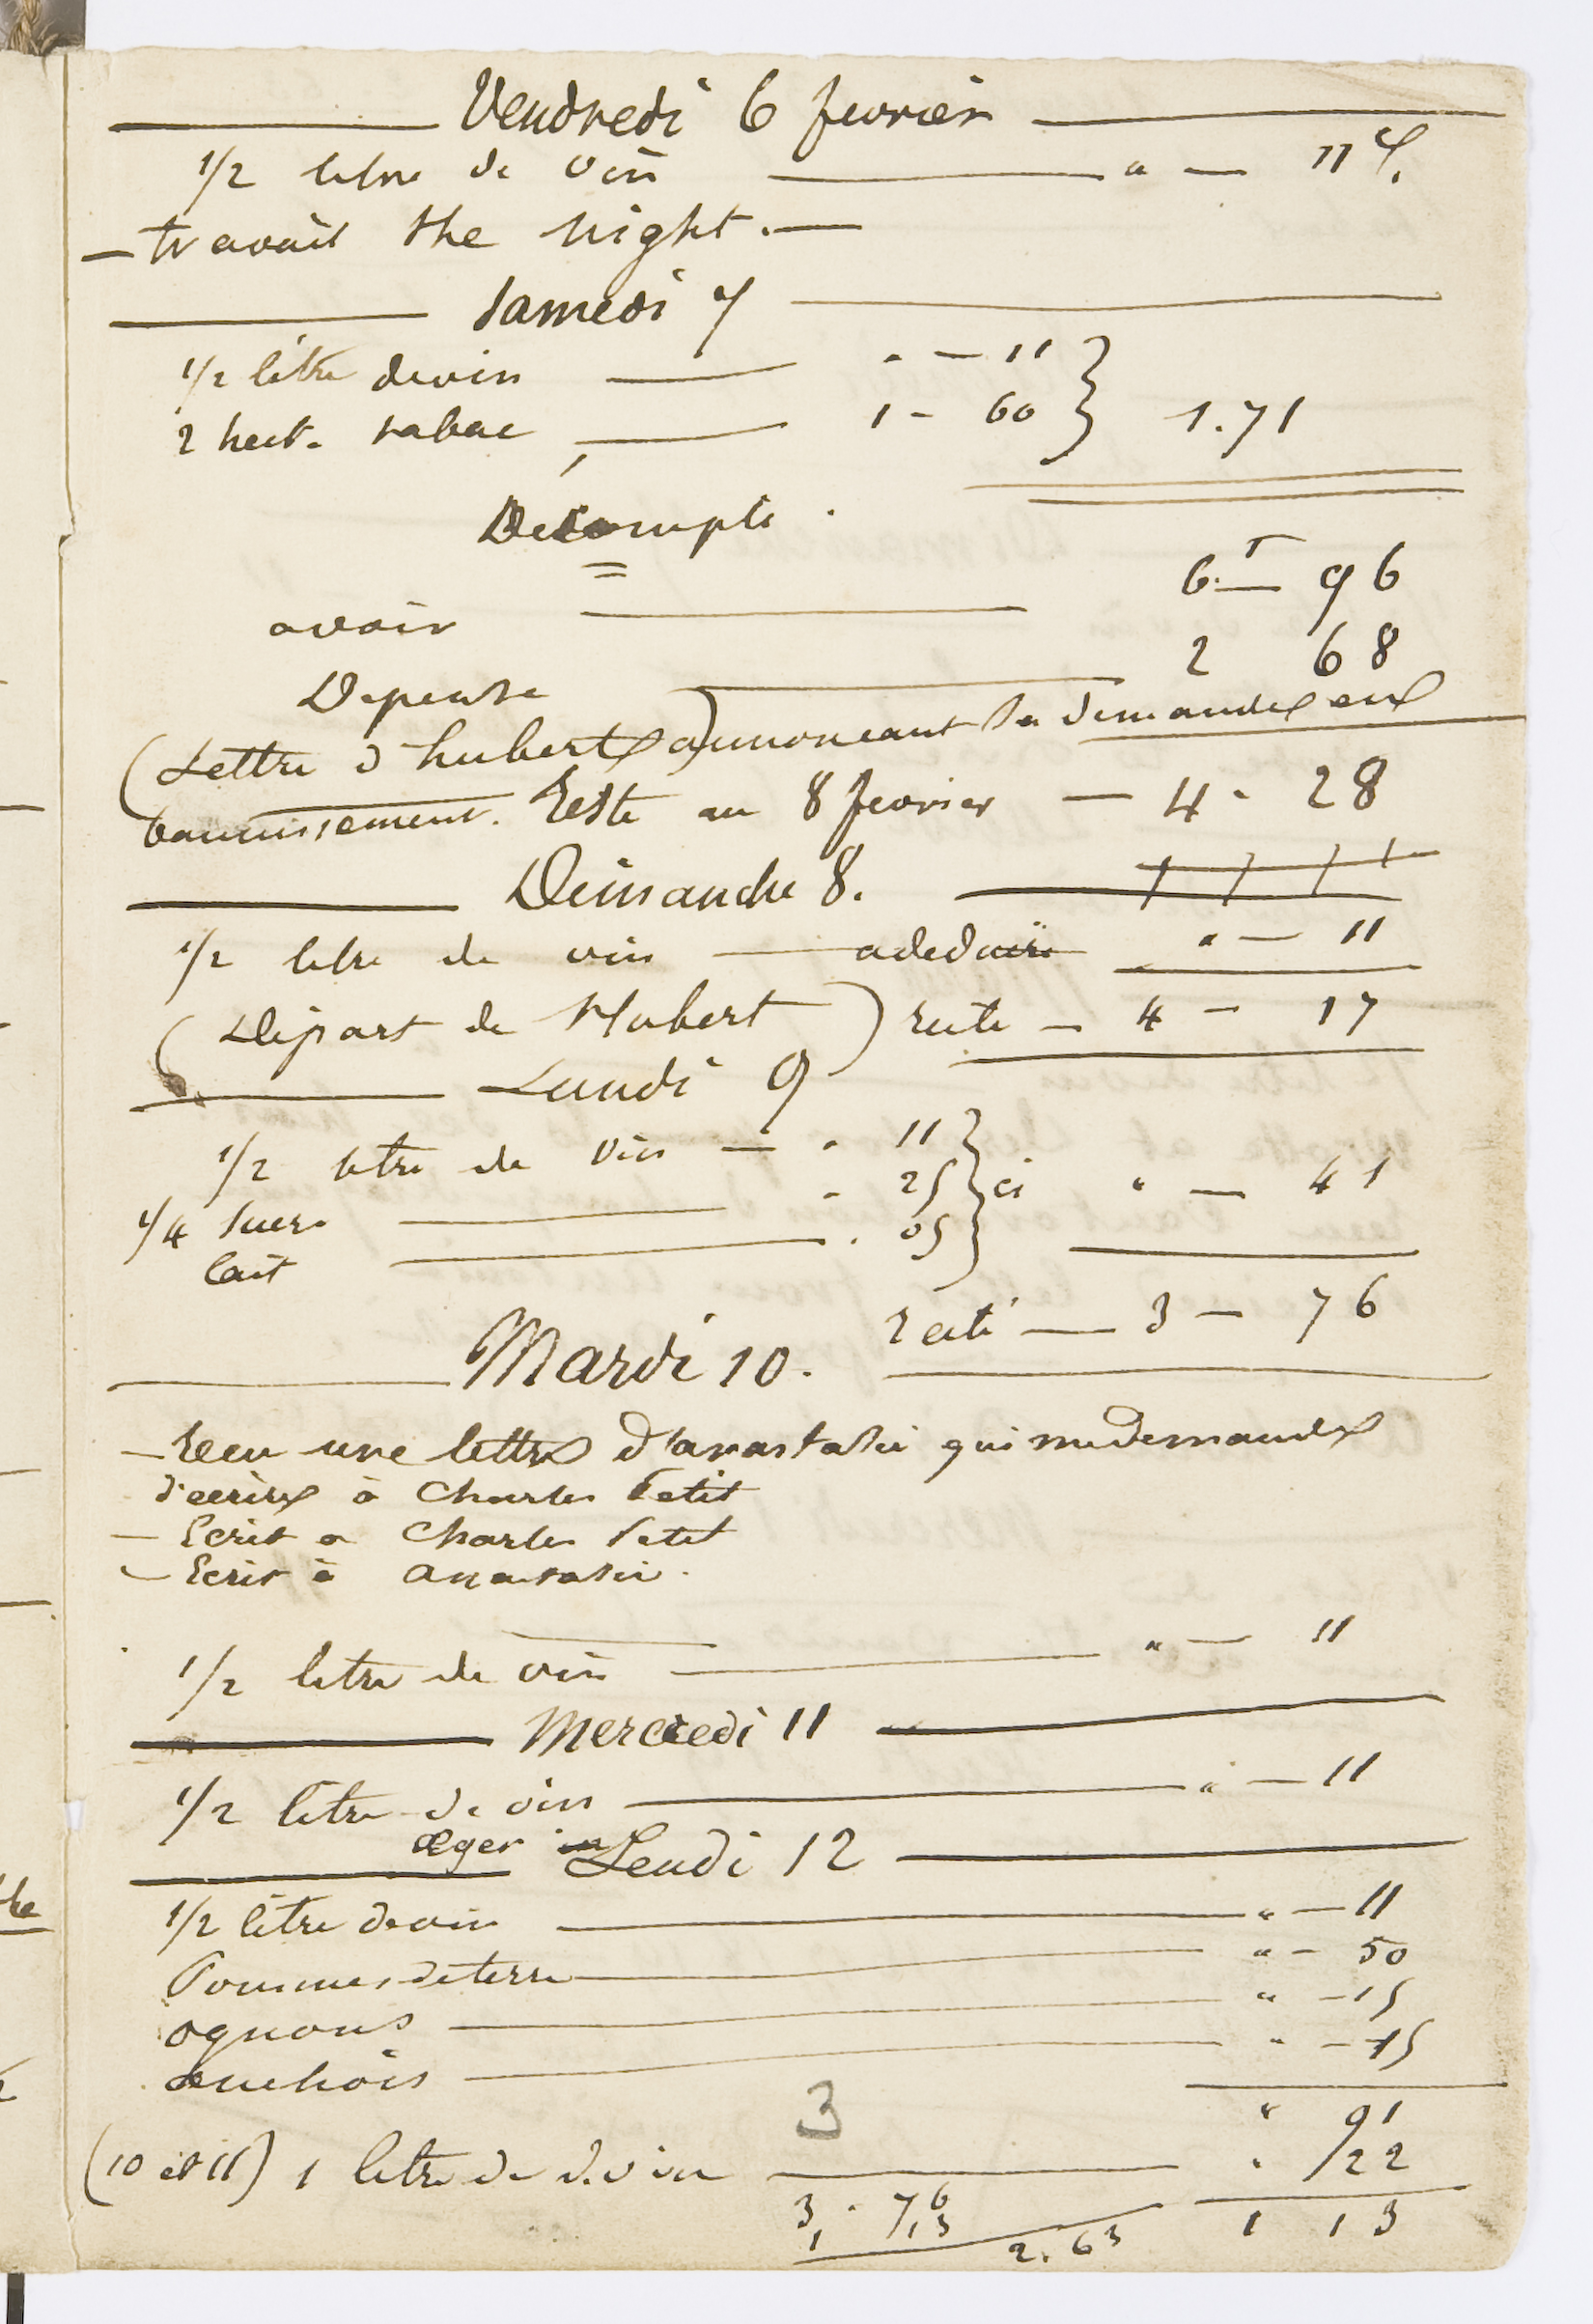 Vendredi 6 fevrier
1/2 litre de vin " — 11 c.
— travail the night. —
Samedi 7
1/2 litre de vin " — 11
2 hect. tabac 1 - 60 } 1.71
Decompte.
avoir 6 f — 96
Depense 2 68
(Lettre d'hubert) annoncant sa demande en
bannissement. Reste au 8 fevrier — 4 - 28
Dimanche 8.
1/2 litre de vin — a deduire " — 11
(Départ de Hubert) reste — 4 — 17
Lundi 9
1/2 litre de vin — " 11
1/4 sucre " 25 } ci " — 41
lait " 05
reste — 3 — 76
Mardi 10.
— Recu une lettre d'anastasie qui me demande
d'ecrire à Charles Petit
— Ecrit a Charles Petit
— Ecrit à anastasie.
1/2 litre de vin " — 11
Mercredi 11
1/2 litre de vin " — 11
æger
Jeudi 12
1/2 litre de vin " — 11
Pommes de terre " — 50
ognons " — 15
anchois " — 15
" 91
3
(10 et 11) 1 litre de vin " 22
3 . 76
1 13
2.63
1 13